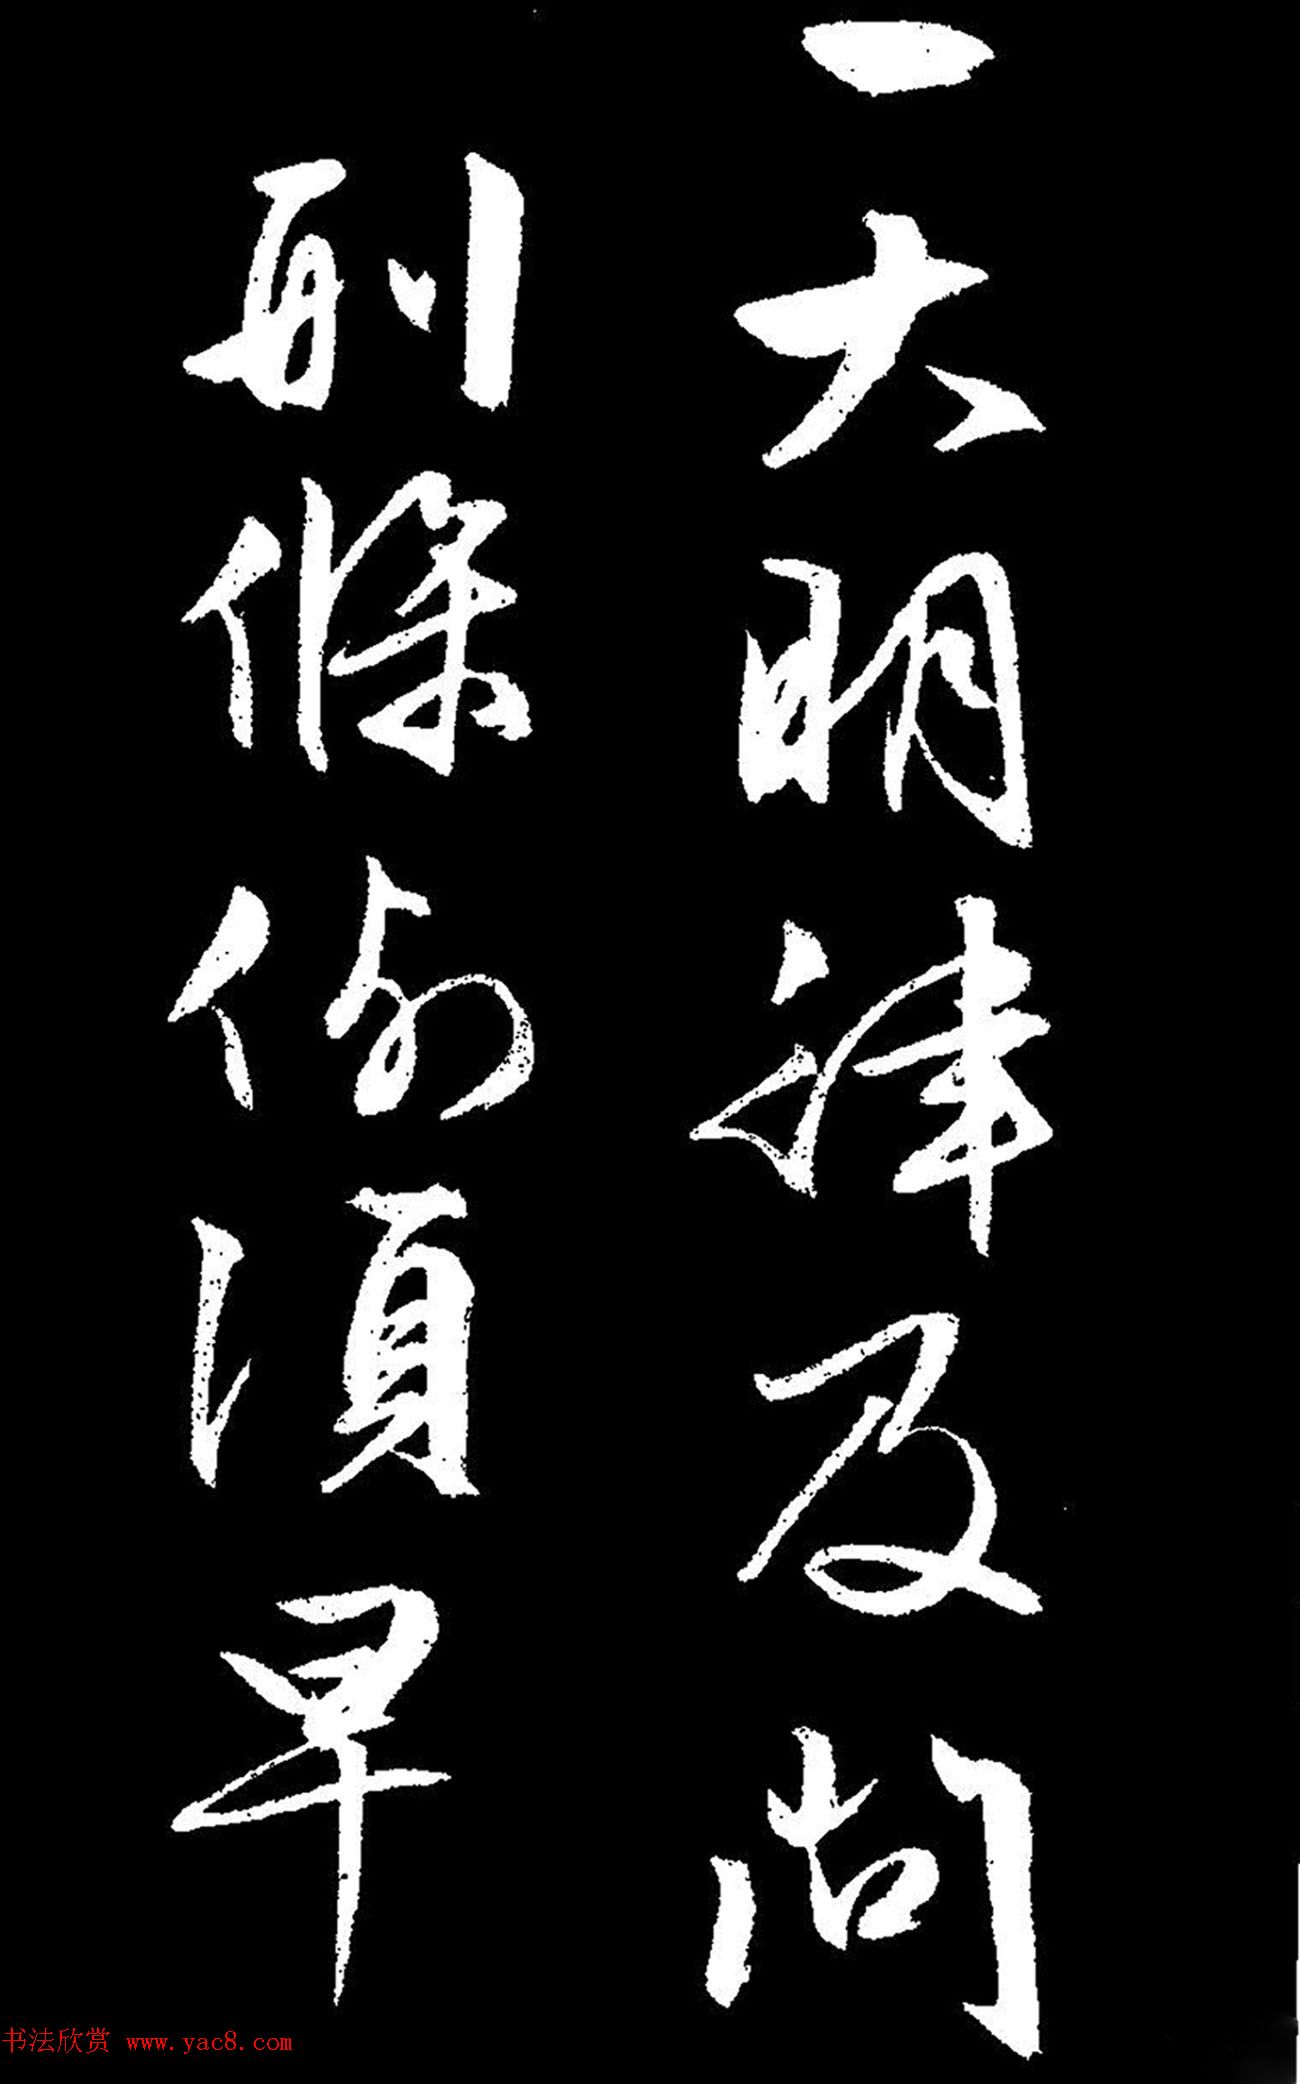 一大明律及問
刑條例須早
书法欣赏 www.yac8.com